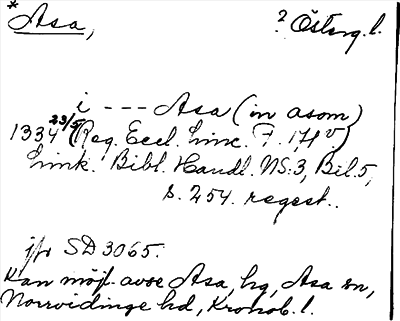 *Asa, ? Österg. l.
i --- Asa (in asom)
1334 23/5 (Reg. Eccl. Linc. F. 171 v)
Link. Bibl. Handl. NS. 3, Bil. 5,
s. 254. regest.
jfr SD 3065.
Kan möjl. avse Asa, hg, Asa sn,
Norrvidinge hd, Kronob. l.